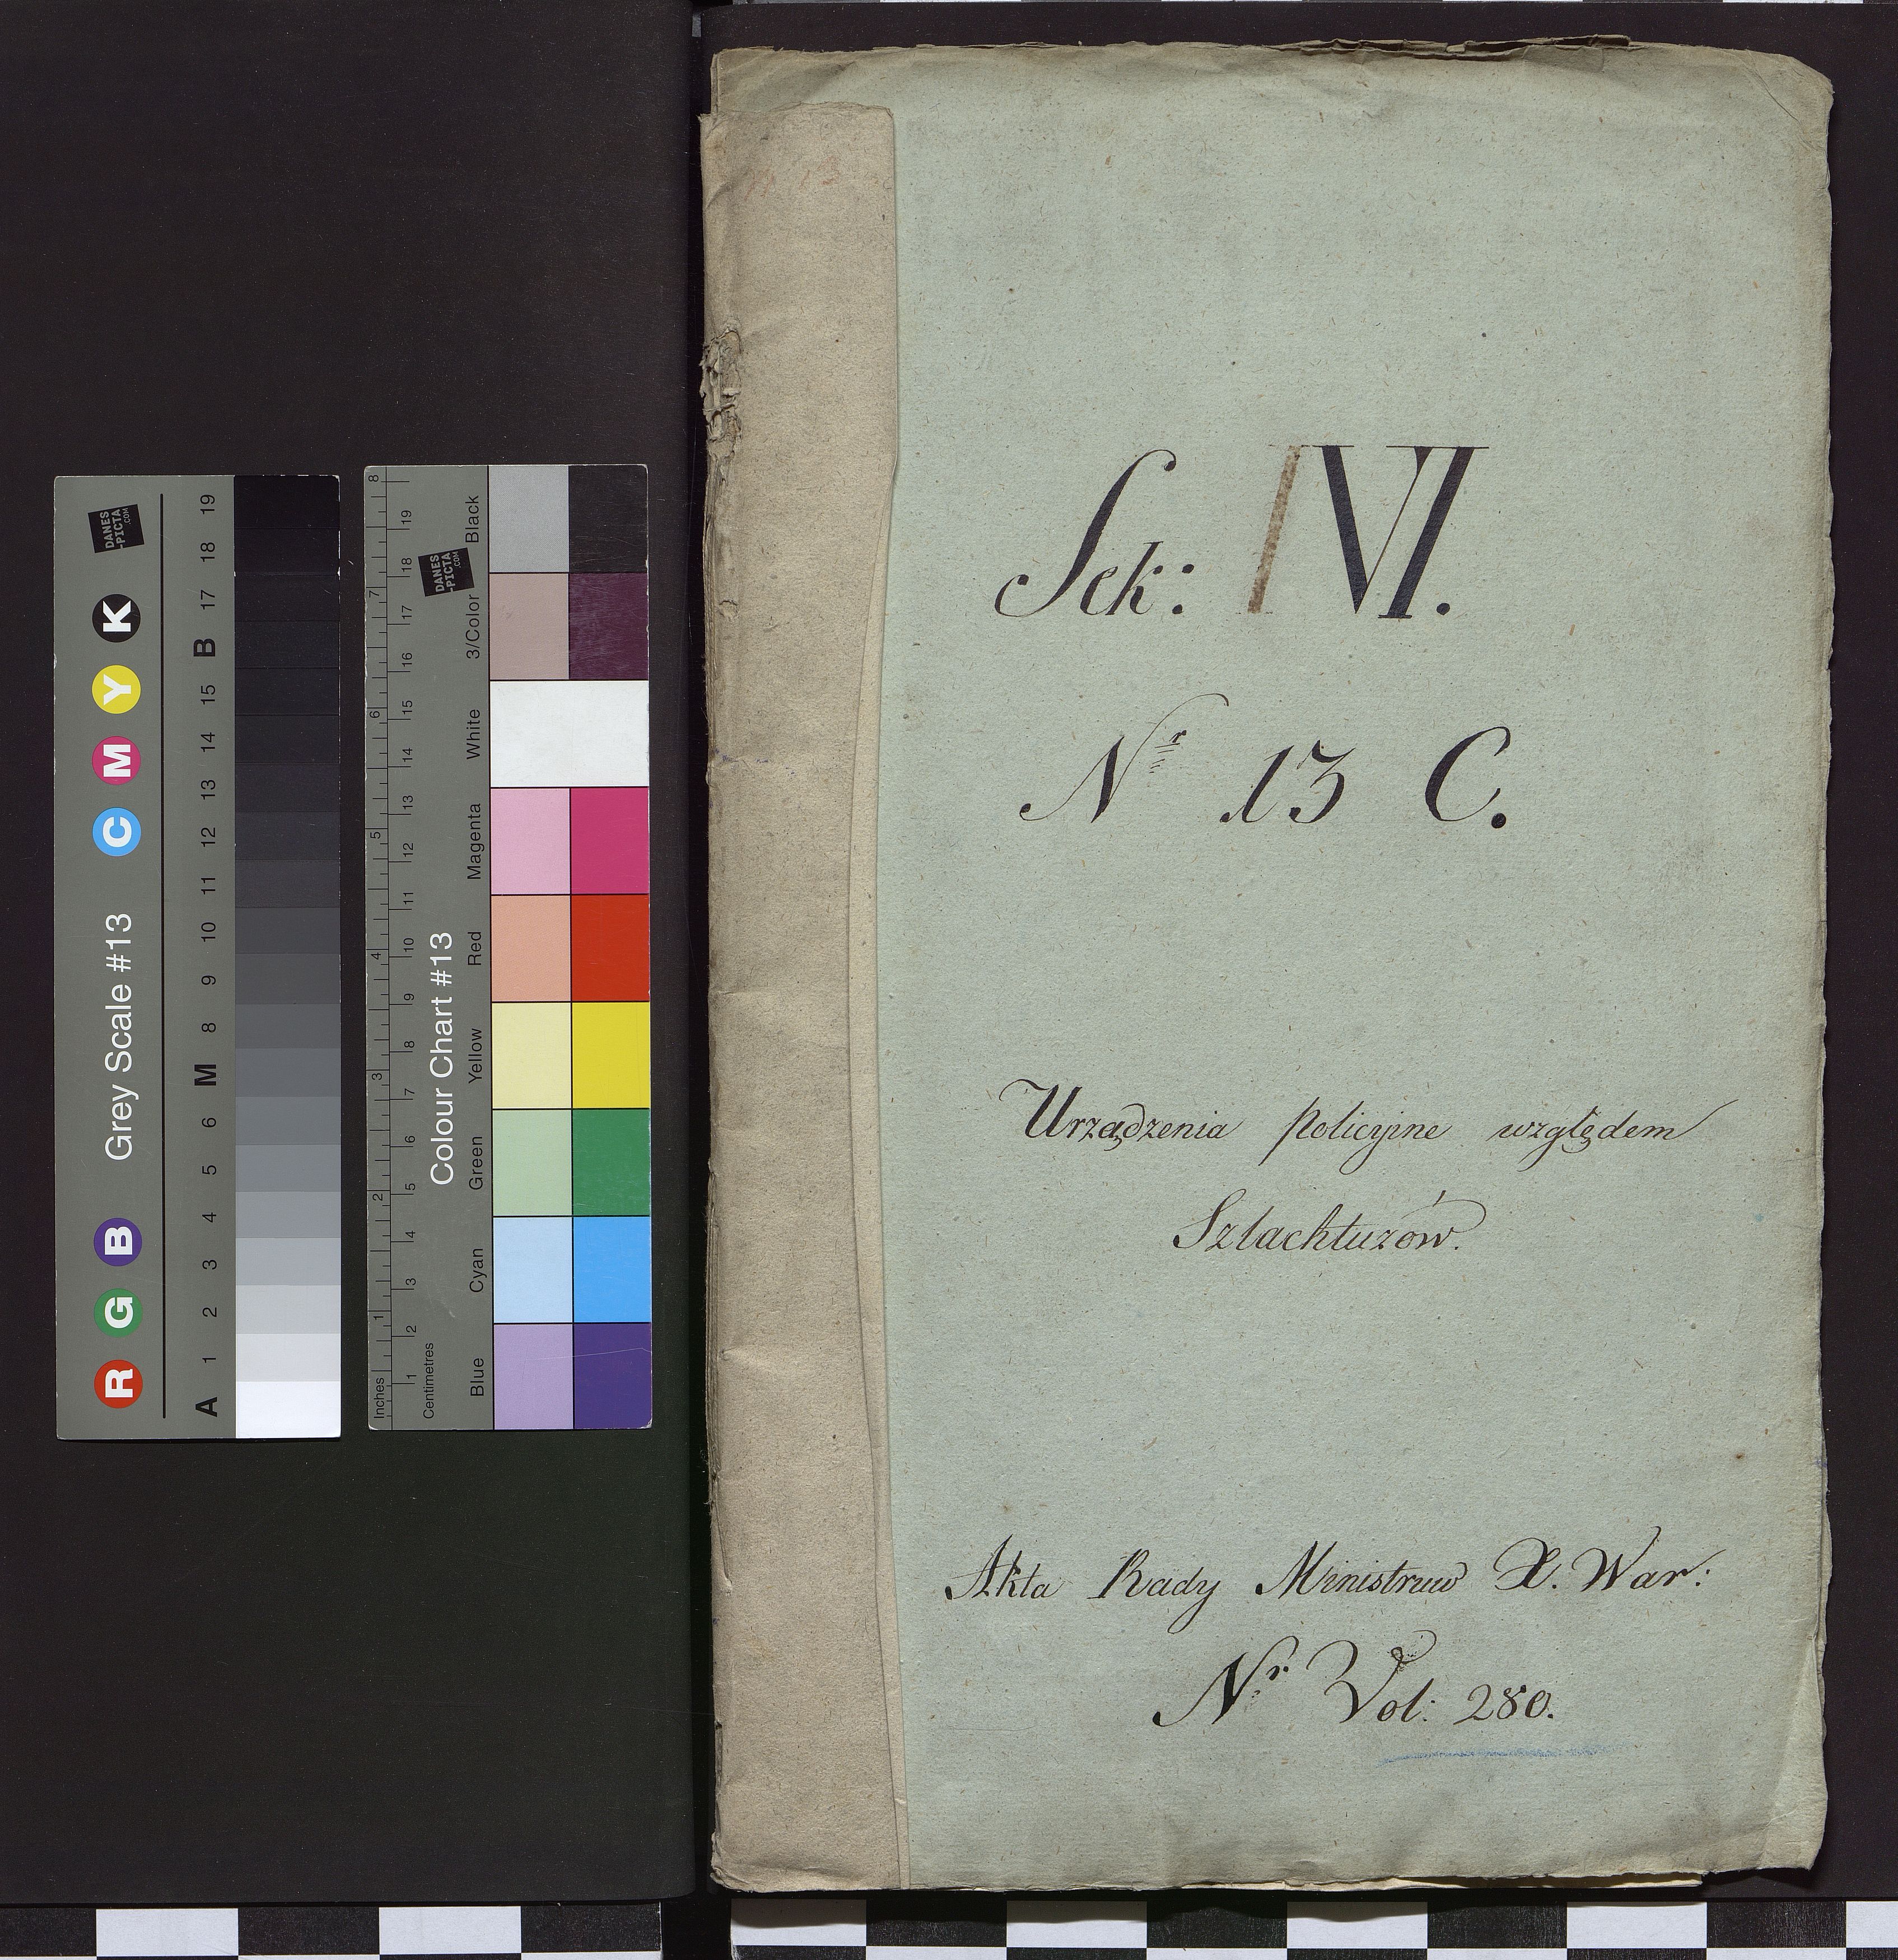 Sek: VI.
Nr 13 C.
Urządzenia policyjne względem
Szlachtuzów.
Akta Rady Ministruw X. War:
Nr. Vol: 280.
Grey Scale #13
R G B C M Y K
A 1 2 3 4 5 6 M 8 9 10 11 12 13 14 15 B 17 18 19
DANES
-PICTA
.COM
Colour Chart #13
Blue Cyan Green Yellow Red Magenta White 3/Color Black
Inches 1 2 3 4 5 6 7 8
Centimetres 1 2 3 4 5 6 7 8 9 10 11 12 13 14 15 16 17 18 19
DANES
-PICTA
.COM